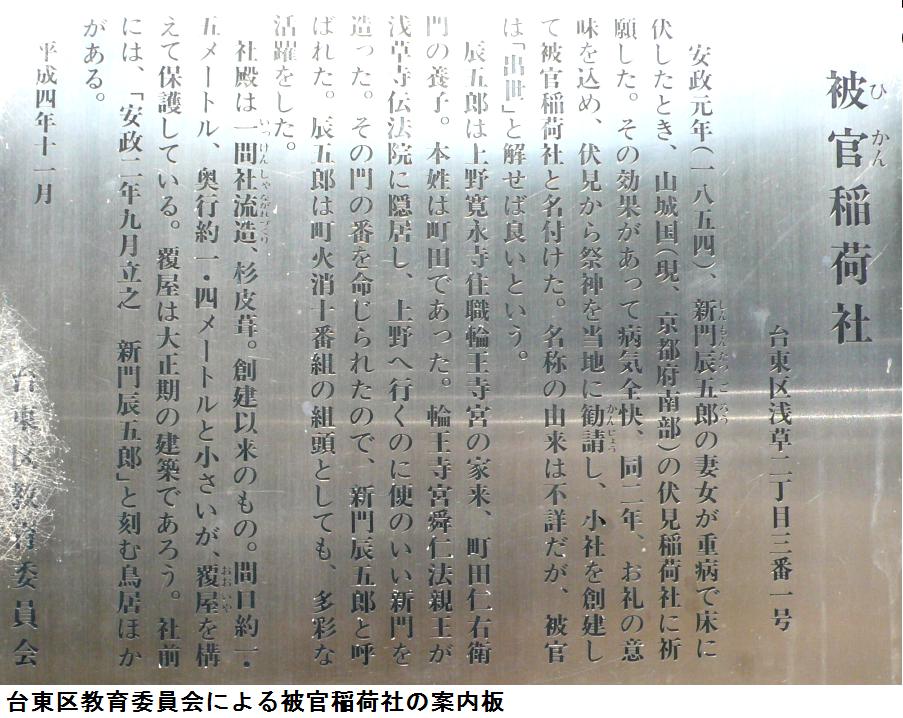 被官稲荷社
ひ かん
台東区浅草二丁目三番一号
安政元年(一八五四)、新門辰五郎の妻女が重病で床に
しんもんたつ ご ろう
伏したとき、山城国(現、京都府南部)の伏見稲荷社に祈
願した。その効果があって病気全快、同二年、お礼の意
味を込め、伏見から祭神を当地に勧請し、小社を創建し
かんじょう
て被官稲荷社と名付けた。名称の由来は不詳だが、被官
は「出世」と解せば良いという。
辰五郎は上野寛永寺住職輪王寺宮の家来、町田仁右衛
門の養子。本姓は町田であった。輪王寺宮舜仁法親王が
浅草寺伝法院に隠居し、上野へ行くのに便のいい新門を
造った。その門の番を命じられたので、新門辰五郎と呼
ばれた。辰五郎は町火消十番組の組頭としても、多彩な
活躍をした。
社殿は一間社流造、杉皮葺。創建以来のもの。間口約一・
いっけんしゃながれづくり
五メートル、奥行約一・四メートルと小さいが、覆屋を構
おお いや
えて保護している。覆屋は大正期の建築であろう。社前
には、「安政二年九月立之 新門辰五郎」と刻む鳥居ほか
がある。
平成四年十一月
台東区教育委員会
台東区教育委員会による被官稲荷社の案内板